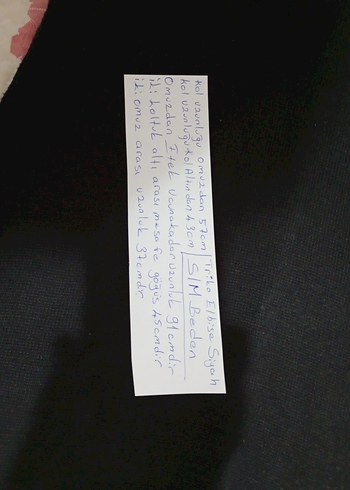 Kol uzunluğu omuzdan 57cm | Triko Elbise Siyah
Kol uzunluğu Kol Altından 43cm | S/M Beden
Omuzdan Etek ucuna kadar uzunluk 91cmdir
iki koltuk altı arası mesafe göğüs 45cmdir
iki omuz arası uzunluk 37cmdir